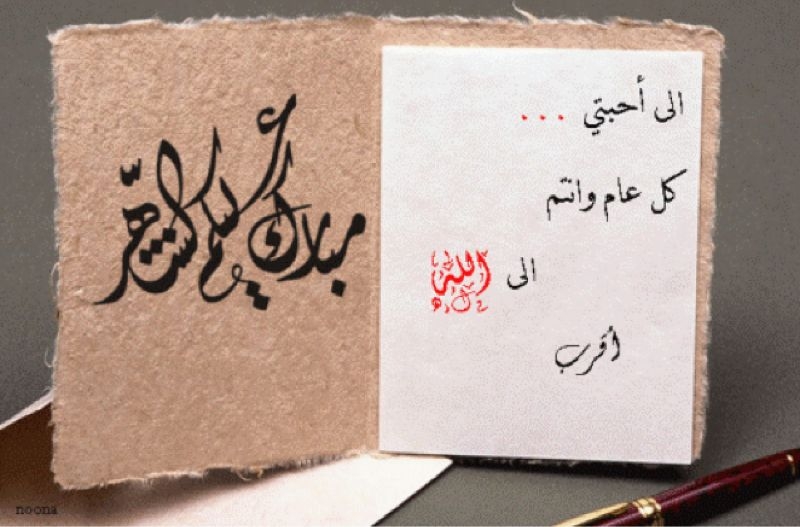 الى أحبتي ...
كل عام وانتم
الى الله
أقرب
مبارك عليكم الشهر
noona